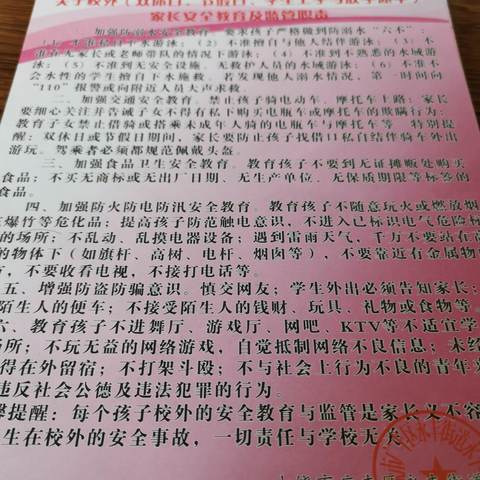 关于校外（双休日、节假日、学生上学与放学途中）
家长安全教育及监管职责
加强防溺水安全教育，要求孩子严格做到防溺水“六不”：
（1）不准私自下水游泳；（2）不准擅自与他人结伴游泳；（3）不
准在无家长或老师带队的情况下游泳；（4）不准到不熟悉的水域游
泳；（5）不准到无安全设施、无救护人员的水域游泳；（6）不准不
会水性的学生擅自下水施救。若发现他人溺水情况，第一时间向
“110”报警或向附近人员大声求救。
二、加强交通安全教育。禁止孩子骑电动车、摩托车上路；家长
要细心关注并告诫子女不得有私下购买电瓶车或摩托车的欺瞒行为；
教育子女禁止借骑或搭乘未成年人骑的电瓶车与摩托车等。特别提
醒：双休日或节假日期间，家长要防止孩子找借口私自结伴骑车外出
游玩。驾乘者必须都规范佩戴头盔。
三、加强食品卫生安全教育。教育孩子不要到无证摊贩处购买
食品；不买无商标或无出厂日期、无生产单位、无保质期限等标签的
食品。
四、加强防火防电防汛安全教育。教育孩子不随意玩火或燃放烟
爆竹等危化品；提高孩子防范触电意识，不进入已标识电气危险标
的场所；不乱动、乱摸电器设备；遇到雷雨天气，千万不要站在高
的物体下（如旗杆、高树、电杆、烟囱等），不要靠近有金属物
方，不要收看电视，不接打电话等。
五、增强防盗防骗意识。慎交网友；学生外出必须告知家长；
陌生人的便车；不接受陌生人的钱财、玩具、礼物或食物等。
六、教育孩子不进舞厅、游戏厅、网吧、KTV等不适宜学
场所；不玩无益的网络游戏，自觉抵制网络不良信息；未经
得在外留宿；不打架斗殴；不与社会上行为不良的青年
违反社会公德及违法犯罪的行为。
提醒：每个孩子校外的安全教育与监管是家长义不容
生在校外的安全事故，一切责任与学校无关